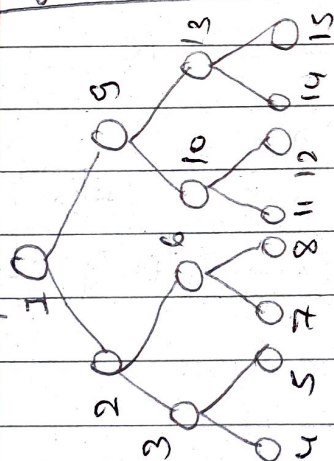 1
2 9
3 6 10 13
4 5 7 8 11 12 14 15